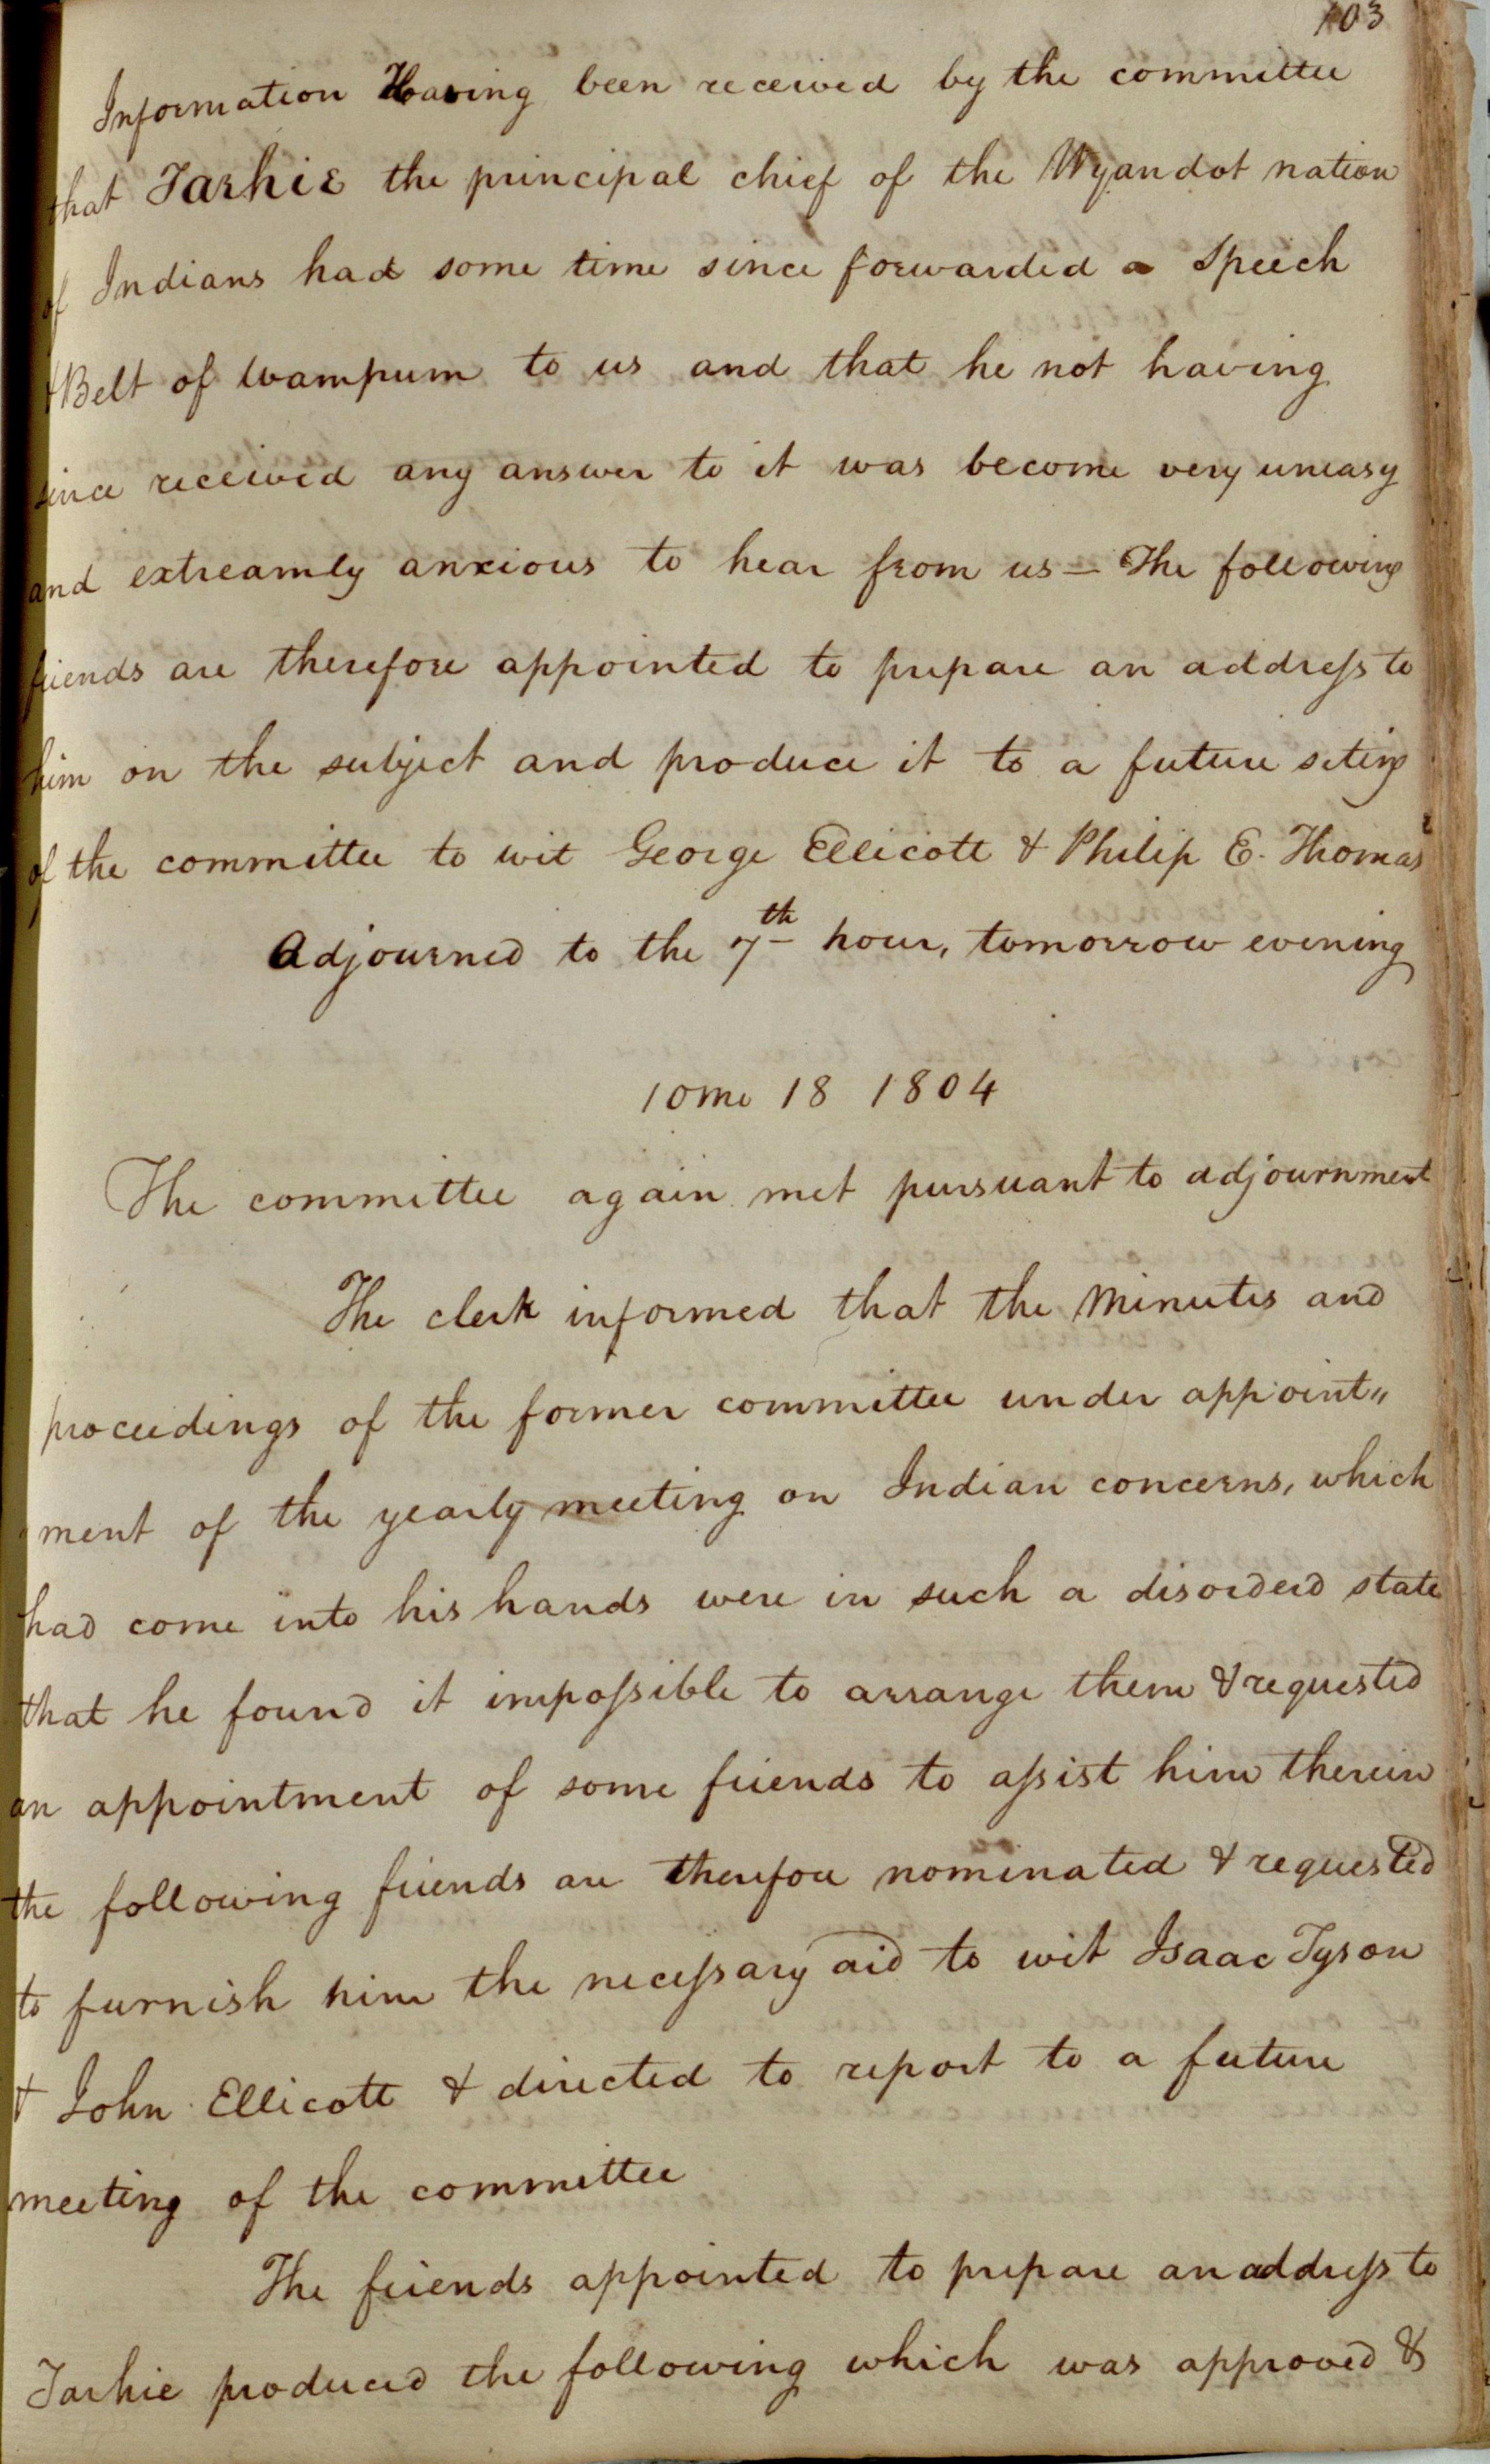 103
Information Having been received by the committee
that Tarhie the principal chief of the Wyandot nation
of Indians had some time since forwarded a Speech
& Belt of Wampum to us and that he not having
since received any answer to it was become very uneasy
and extreamly anxious to hear from us — The following
friends are therefore appointed to prepare an addreſs to
him on the subject and produce it to a future seting
of the committee to wit George Ellicott & Philip E. Thomas
Adjourned to the 7th hour, tomorrow evening
10mo 18 1804
The committee again met pursuant to adjournment
The clerk informed that the Minutes and
proceedings of the former committee under appoint„
ment of the yearly meeting on Indian concerns, which
had come into his hands were in such a disorderd state
that he found it impoſsible to arrange them & requested
an appointment of some friends to aſsist him therein
the following friends are therefore nominated & requested
to furnish him the neceſsary aid to wit Isaac Tyson
& John Ellicott & directed to report to a future
meeting of the committee
The friends appointed to prepare an addreſs to
Tarhie produced the following which was approved &